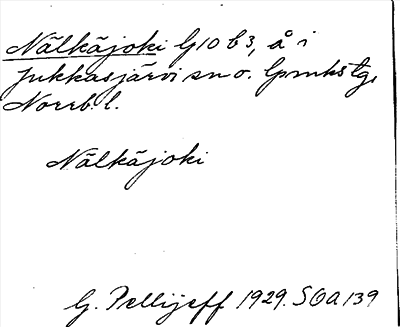 Nälkäjoki G10 b3, å i
Jukkasjärvi sn o. lpmks tg,
Norrb. l.
Nälkäjoki
G. Pellijeff 1929. SOA 139